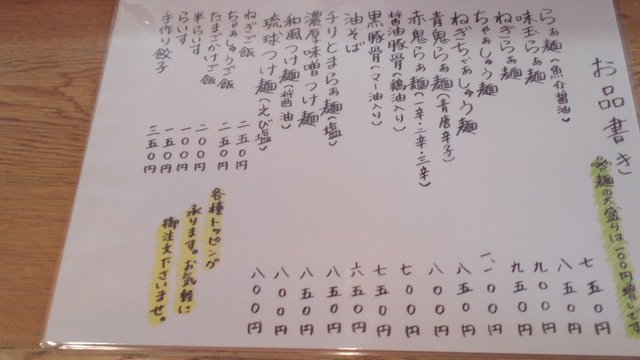 お品書き
各麺の大盛りは100円増しです
らぁ麺(魚介醤油) 七五〇円
味玉らぁ麺 八五〇円
ねぎらぁ麺 九〇〇円
ちゃあしゅう麺 九五〇円
ねぎちゃあしゅう麺 一、一〇〇円
青鬼らぁ麺(青唐辛子) 八五〇円
赤鬼らぁ麺(一辛・二辛・三辛) 八〇〇円
醤油豚骨(鶏油入り) 七〇〇円
黒豚骨(マー油入り) 七五〇円
油そば 六五〇円
チリとまらぁ麺(塩) 八五〇円
濃厚味噌つけ麺 八五〇円
和風つけ麺(醤油) 八〇〇円
琉球つけ麺(えび塩) 八〇〇円
ねぎご飯 二五〇円
ちゃあしゅうご飯 二五〇円
たまごかけご飯 二〇〇円
半らいす 一〇〇円
らいす 一五〇円
手作り餃子 三五〇円
各種トッピングが
承ります。お気軽に
御注文下さいませ。